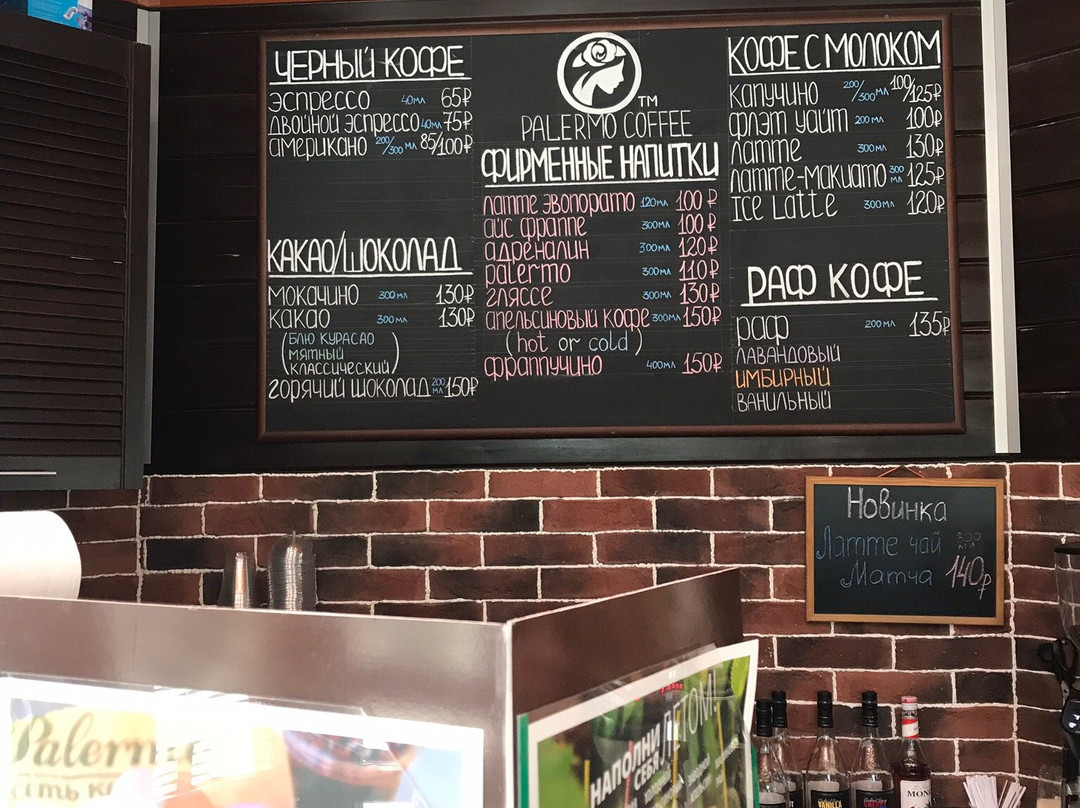 ЧЕРНЫЙ КОФЕ
ЭСПРЕССО 40МЛ 65₽
ДВОЙНОЙ ЭСПРЕССО 40МЛ 75₽
АМЕРИКАНО 200/300 МЛ 85/100₽
КАКАО/ШОКОЛАД
МОКАЧИНО 300МЛ 130₽
КАКАО 300МЛ 130₽
(БЛЮ КУРАСАО
МЯТНЫЙ
КЛАССИЧЕСКИЙ)
ГОРЯЧИЙ ШОКОЛАД 200 МЛ 150₽
TM
PALERMO COFFEE
ФИРМЕННЫЕ НАПИТКИ
ЛАТТЕ ЭВОПОРАТО 120МЛ 100₽
АЙС ФРАППЕ 300МЛ 100₽
АДРЕНАЛИН 300МЛ 120₽
palermo 300МЛ 110₽
ГЛЯССЕ 300МЛ 130₽
АПЕЛЬСИНОВЫЙ КОФЕ 300МЛ 150₽
(hot or cold)
ФРАППУЧИНО 400МЛ 150₽
КОФЕ С МОЛОКОМ
КАПУЧИНО 200/300 МЛ 100/125₽
ФЛЭТ УАЙТ 200 МЛ 100₽
ЛАТТЕ 300МЛ 130₽
ЛАТТЕ-МАКИАТО 300 МЛ 125₽
ICE LATTE 300МЛ 120₽
РАФ КОФЕ
РАФ 200МЛ 135₽
ЛАВАНДОВЫЙ
ИМБИРНЫЙ
ВАНИЛЬНЫЙ
Новинка
Латте чай 300 мл
Матча 140₽
Palerm
НАПОЛНИ
СЕБЯ
ЛЕТОМ!
VANILLA
MON